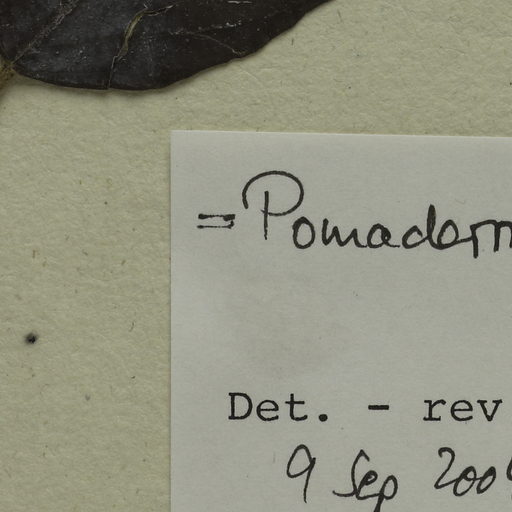 = Pomaderr
Det. - rev
9 Sep 200